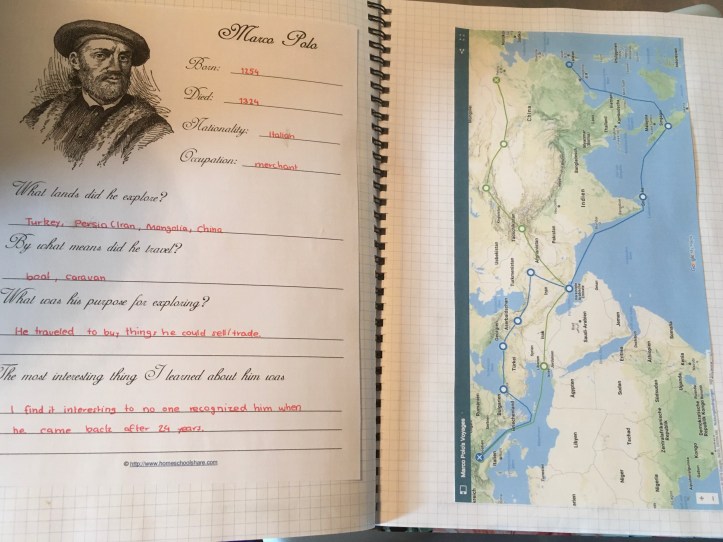 Marco Polo
Born: 1254
Died: 1324
Nationality: Italian
Occupation: merchant
What lands did he explore?
Turkey, Persia (Iran, Mongolia, China
By what means did he travel?
boat, caravan
What was his purpose for exploring?
He traveled to buy things he could sell/trade.
The most interesting thing I learned about him was
I find it interesting to no one recognized him when
he came back after 24 years.
© http://www.homeschoolshare.com
Marco Polo's Voyages
China
Indien
Pakistan
Afghanistan
Usbekistan
Turkmenistan
Iran
Irak
Türkei
Saudi-Arabien
Jemen
Ägypten
Libyen
Sudan
Tschad
Niger
Nigeria
Äthiopien
Somalia
Kenia
Zentralafrikanische
Republik
Demokratische
Republik Kongo